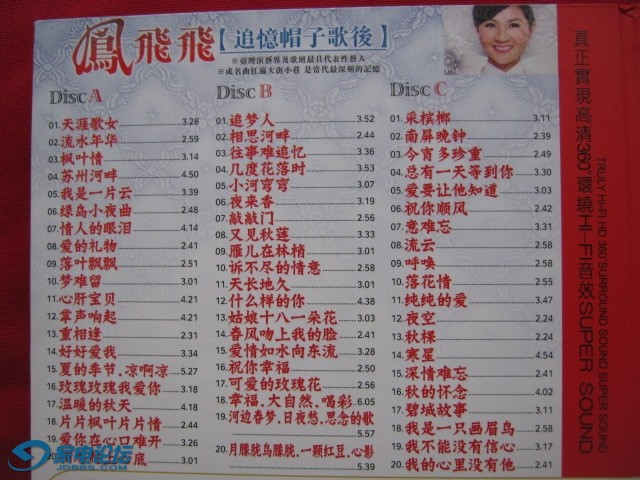 鳳飛飛【追憶帽子歌後】
※臺灣演藝界及歌壇最具代表性藝人
※成名曲紅遍大街小巷 是當代最深刻的記憶
Disc A
01.天涯歌女 3.28
02.流水年华 2.59
03.枫叶情 3.14
04.苏州河畔 4.50
05.我是一片云 2.39
06.绿岛小夜曲 2.48
07.情人的眼泪 4.14
08.爱的礼物 2.41
09.落叶飘飘 2.51
10.梦难留 3.01
11.心肝宝贝 4.21
12.掌声响起 4.21
13.重相逢 2.31
14.好好爱我 3.34
15.夏的季节.凉啊凉 5.27
16.玫瑰玫瑰我爱你 3.18
17.温暖的秋天 4.18
18.片片枫叶片片情 2.44
19.爱你在心口难开 3.26
底 3.01
Disc B
01.追梦人 3.52
02.相思河畔 2.44
03.往事难追忆 3.36
04.几度花落时 3.53
05.小河弯弯 3.07
06.夜来香 3.19
07.敲敲门 2.51
08.又见秋莲 3.53
09.雁儿在林梢 3.01
10.诉不尽的情意 2.58
11.天长地久 3.01
12.什么样的你 4.38
13.姑娘十八一朵花 3.03
14.春风吻上我的脸 2.41
15.爱情如水向东流 3.28
16.祝你幸福 2.50
17.可爱的玫瑰花 2.56
18.幸福.大自然.喝彩 6.05
19.河边春梦.日夜愁.思念的歌
5.57
20.月朦胧鸟朦胧.一颗红豆.心影
5.39
Disc C
01.采槟榔 3.11
02.南屏晚钟 2.39
03.今宵多珍重 2.49
04.总有一天等到你 3.30
05.爱要让他知道 3.03
06.祝你顺风 2.42
07.意难忘 3.31
08.流云 2.58
09.呼唤 2.58
10.落花情 2.55
11.纯纯的爱 3.47
12.夜空 2.24
13.秋棵 2.24
14.寒星 4.54
15.深情难忘 2.41
16.秋的怀念 4.02
17.碧城故事 3.11
18.我是一只画眉鸟 2.58
19.我不能没有信心 3.17
20.我的心里没有他 2.41
真正實現高清360°環繞HI-FI音效SUPER SOUND
TRULY HI-FI HD 360 SURROUND SOUND SUPER SOUND
家电论坛
JDBBS.COM